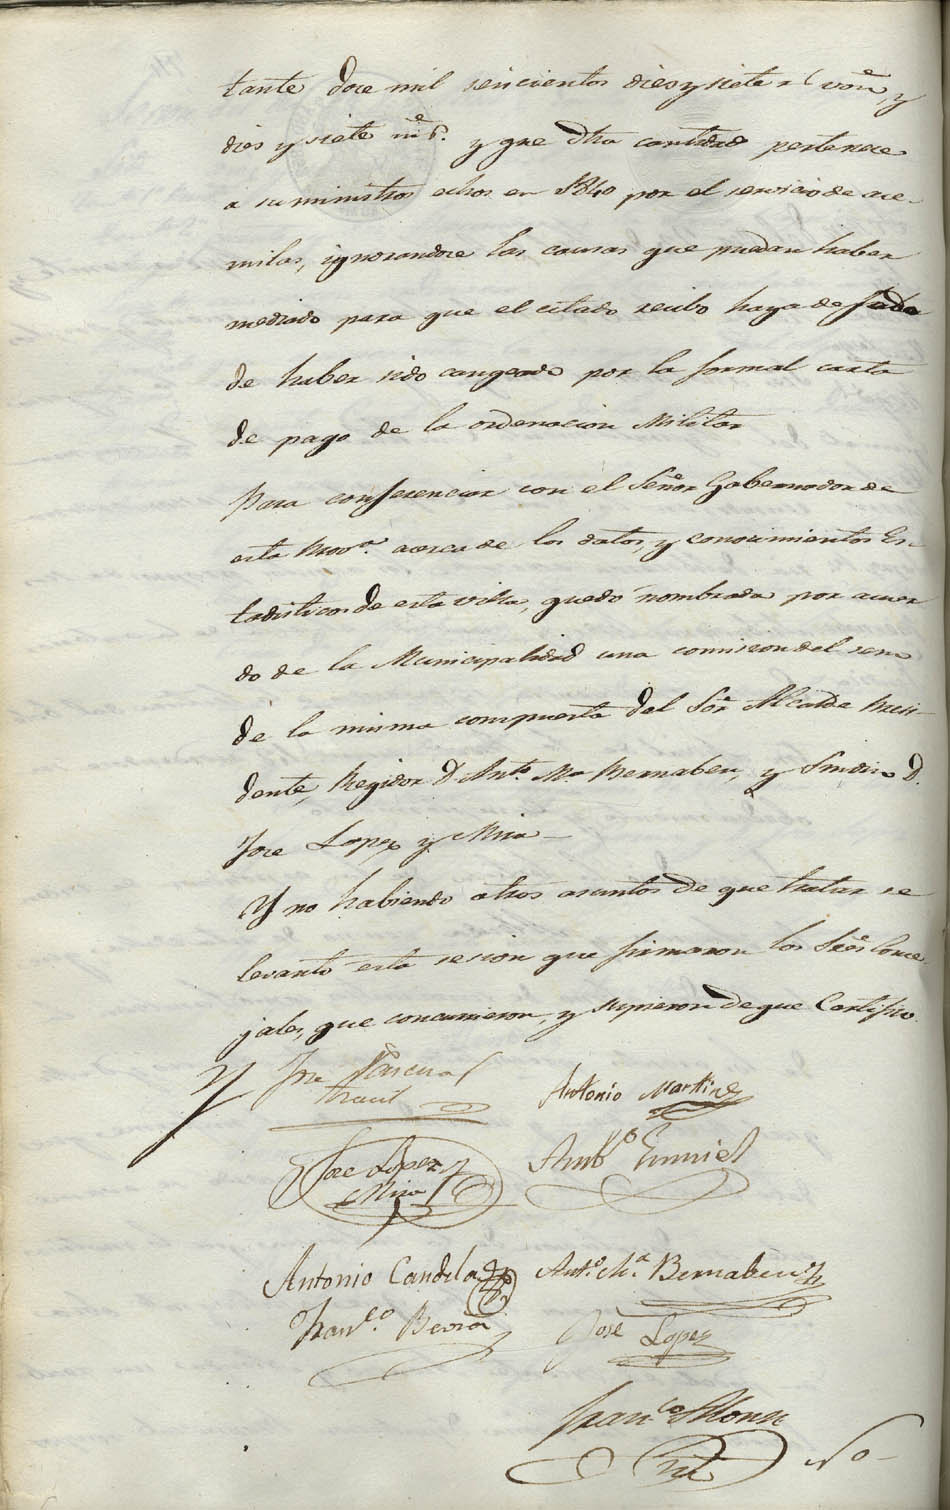 tante doce mil seiscientos dies y siete rs von, y
dies y siete ms. y que dha cantidad pertenece
a suministros echos en 1840 por el servicio de ace-
milas, ignorandose las causas que puedan haber
mediado para que el citado recibo haya dejado
de haber sido cangeado por la formal carta
de pago de la ordenacion Militar
Para conferenciar con el Señor Gobernador de
esta Prova. acerca de los datos, y conocimientos Es-
tadisticos de esta villa, quedó nombrada por acuer
do de la Municipalidad una comision del seno
de la misma compuesta del Sor Alcalde Presi-
dente, Regidor D. Anto. Ma. Bernabeu, y Sindico D.
Jose Lopez y Mira
Y no habiendo otros asuntos de que tratar se
levantó esta sesion que firmaron los Sres Conce-
jales, que concurrieron, y supieron de que Certifico.
Jose Pascual
Antonio Martinez
Jose Lopez y
Mira
Antonio Candela
Anto. Ma. Bernabeu
Franco.
Jose Lopez
Franco